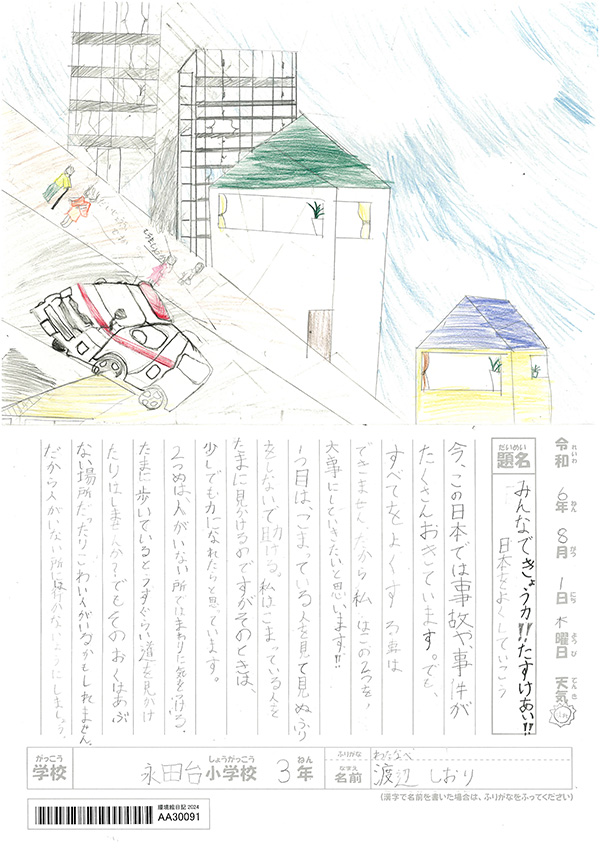 令和 6年 8月 1日 木曜日 天気
れいわ ねん がつ にち ようび てんき
だいめい
題名
みんなできょう力!!たすけあい!!
日本をよくしていこう
今、この日本では事故や、事件が
たくさんおきています。でも、
すべてをよくする事は
できません。だから私はこの2つを、
大事にしていきたいと思います!!
1つ目は、こまっている人を見て見ぬふり
をしないで助ける。私はこまっている人を
たまに見かけるのですがそのときは
少しでも力になれたらと思っています。
2つめは、人がいない所ではまわりに気をつける。
たまに歩いているとうすぐらい道を見かけ
たりはしませんか?でもそのおくはあぶ
ない場所だったりこわい人がいるかもしれません。
だから人がいない所は行かないようにしましょう。
がっこう
学校
永田台小学校 3年
しょうがっこう ねん
ふりがな わたなべ
なまえ
名前 渡辺 しおり
(漢字で名前を書いた場合は、ふりがなをふってください)
環境絵日記 2024
AA30091